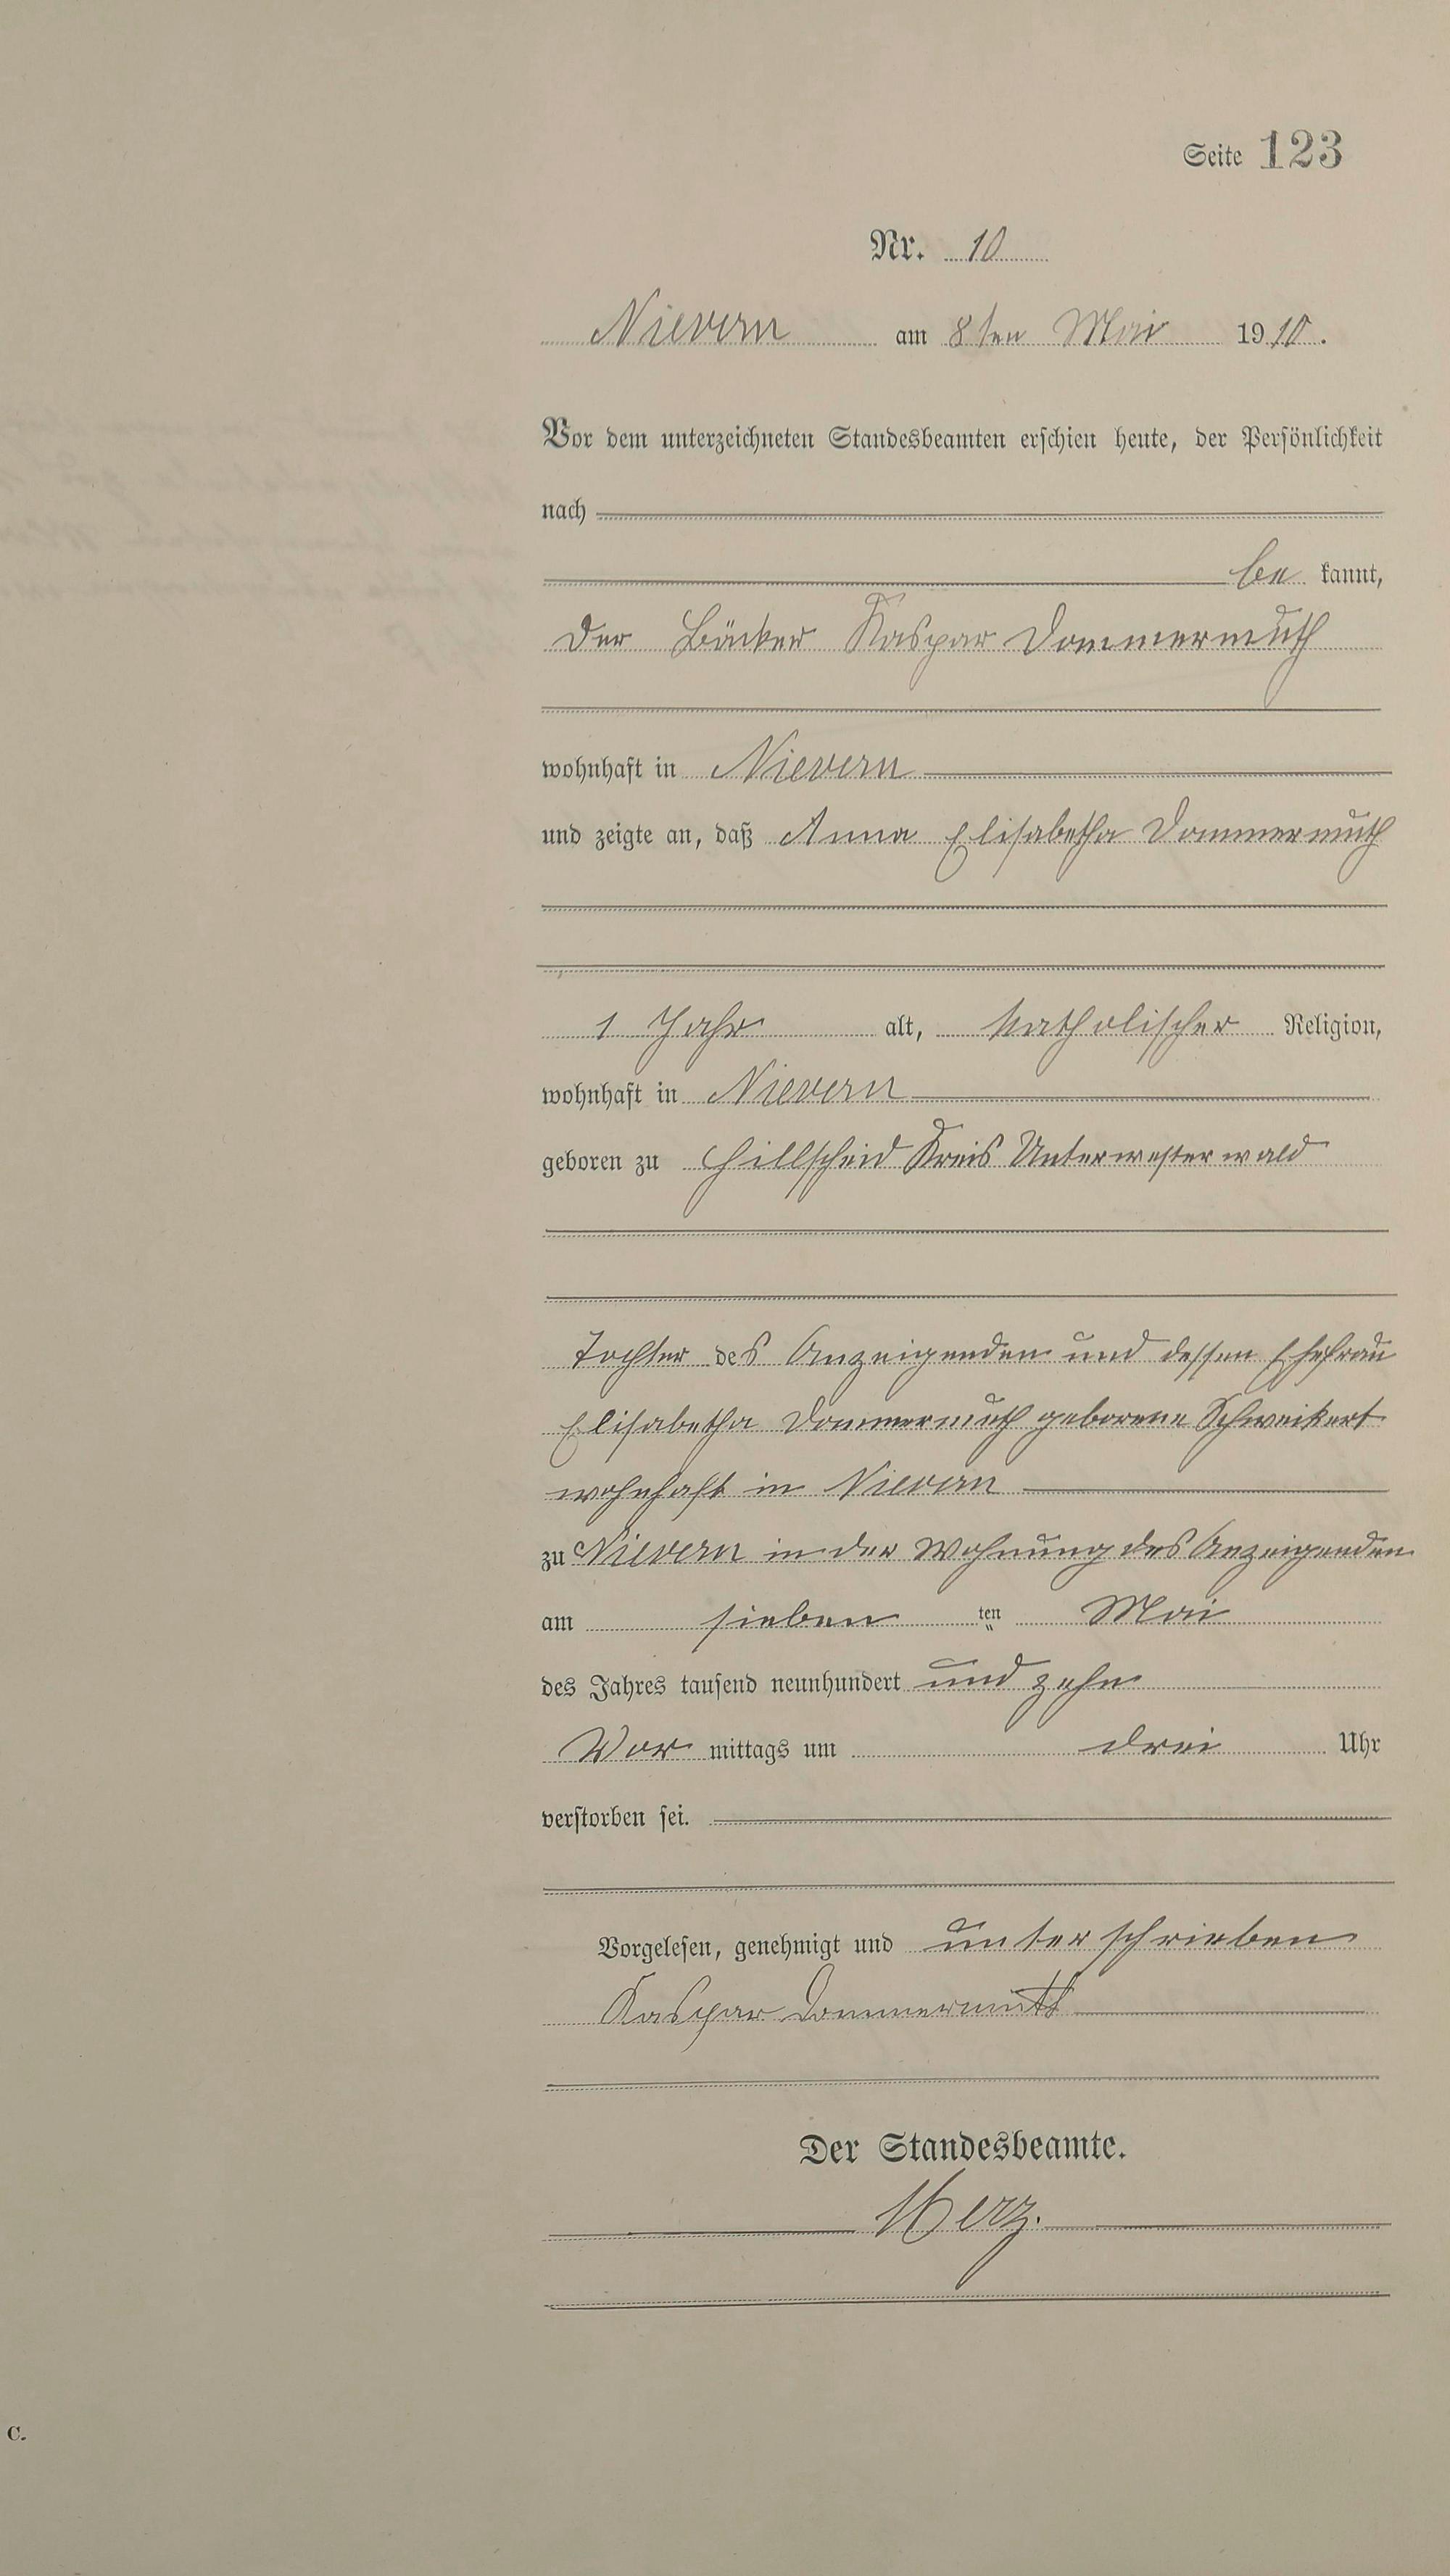 Seite 123
Nr. 10
Nievern am 8ten Mai 1910.
Vor dem unterzeichneten Standesbeamten erschien heute, der Persönlichkeit
nach
be kannt,
der Bäcker Kaspar Dommermuth
wohnhaft in Nievern
und zeigte an, daß Anna Elisabetha Dommermuth
1 Jahr alt, katholischer Religion,
wohnhaft in Nievern
geboren zu Hillscheid Kreis Unterwesterwald
Tochter des Anzeigenden und dessen Ehefrau
Elisabetha Dommermuth geborene Schweikert
wohnhaft in Nievern
zu Nievern in der Wohnung des Anzeigenden
am sieben ten Mai
des Jahres tausend neunhundert und zehn
Vor mittags um drei Uhr
verstorben sei.
Vorgelesen, genehmigt und unterschrieben
Kaspar Dommermuth
Der Standesbeamte.
Herz.
C.